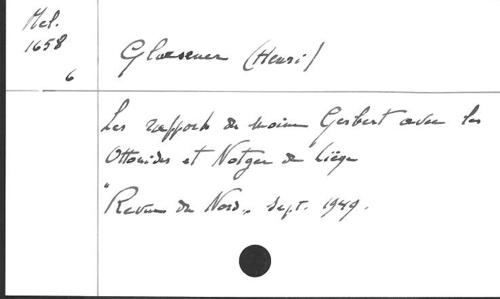 Mel.
1658
6
Glaesener (Henri)
Les rapports du moine Gerbert avec les
Ottonides et Notger de Liège
"Revue du Nord", sept. 1949.